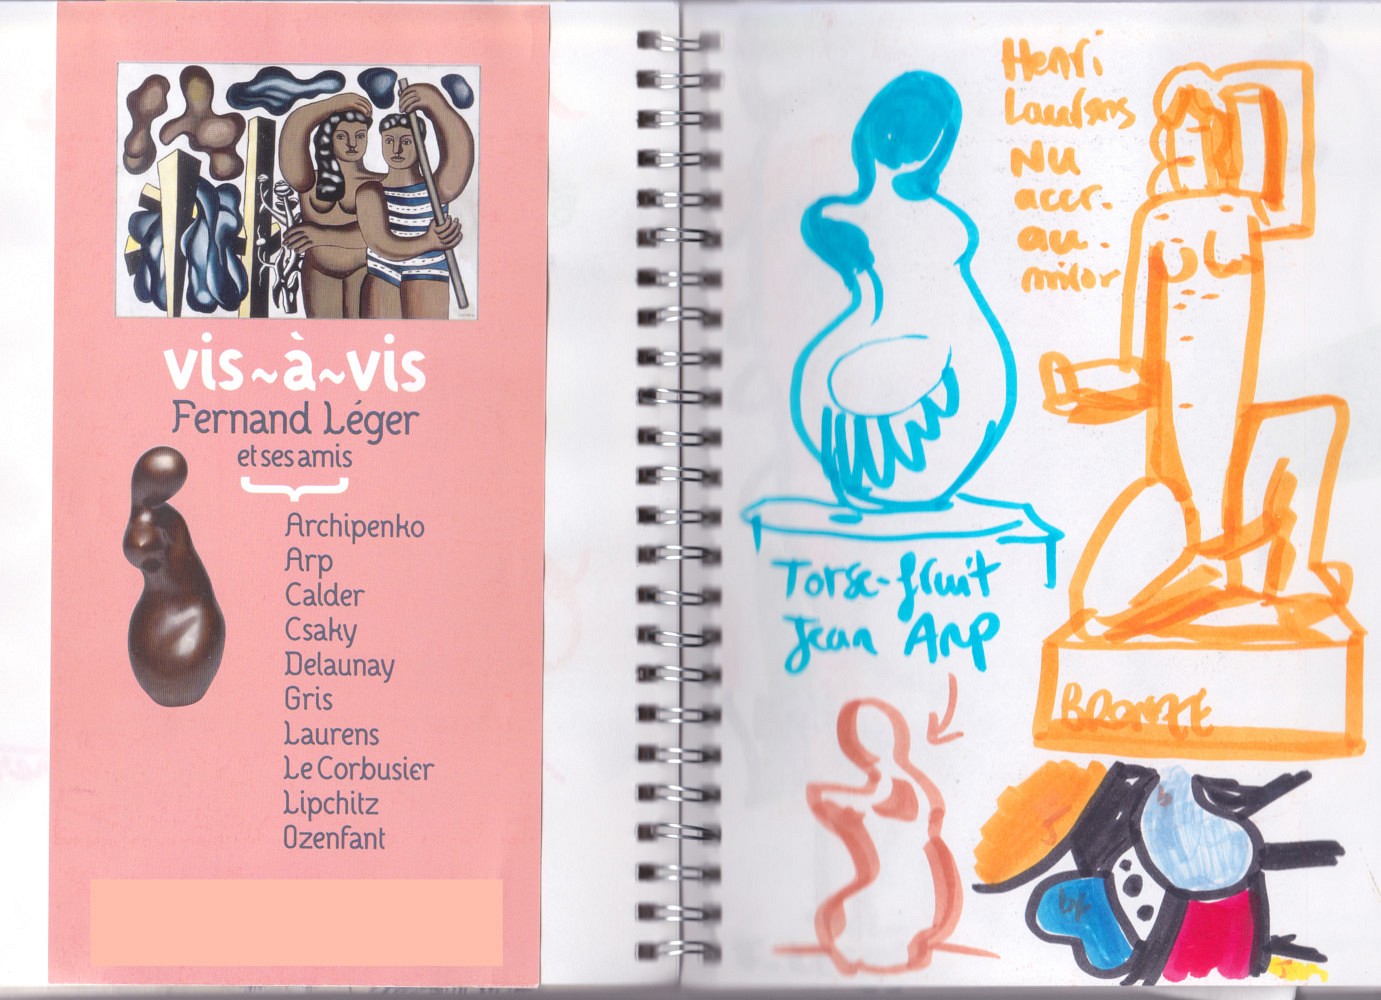 vis~à~vis
Fernand Léger
et ses amis
Archipenko
Arp
Calder
Csaky
Delaunay
Gris
Laurens
Le Corbusier
Lipchitz
Ozenfant
Henri
Laurens
Nu
accr.
au.
miroir
Torse-fruit
Jean Arp
BRONZE